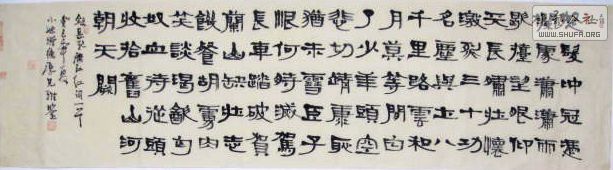 髮冲冠憑
闌處瀟瀟雨
歇擡望眼仰
天長嘯壯懷
激烈三十功
名塵與土八
千里路雲和
月莫等閒白
了少年頭空
悲切靖康恥
猶未雪臣子
恨何時滅駕
長車踏破賀
蘭山缺壯志
飢餐胡虜肉
笑談渴飲匈
奴血待從頭
收拾舊山河
朝天闕
岳飛滿江紅詞一首